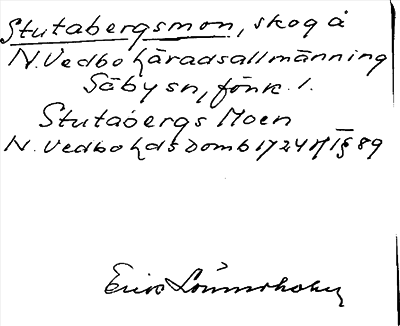 Stutabergsmon, skog å
N. Vedbo häradsallmänning
Säby sn, Jönk. l.
Stutabergs Moen
N. Vedbo hds Domb 1724 17/1 § 89
Erik